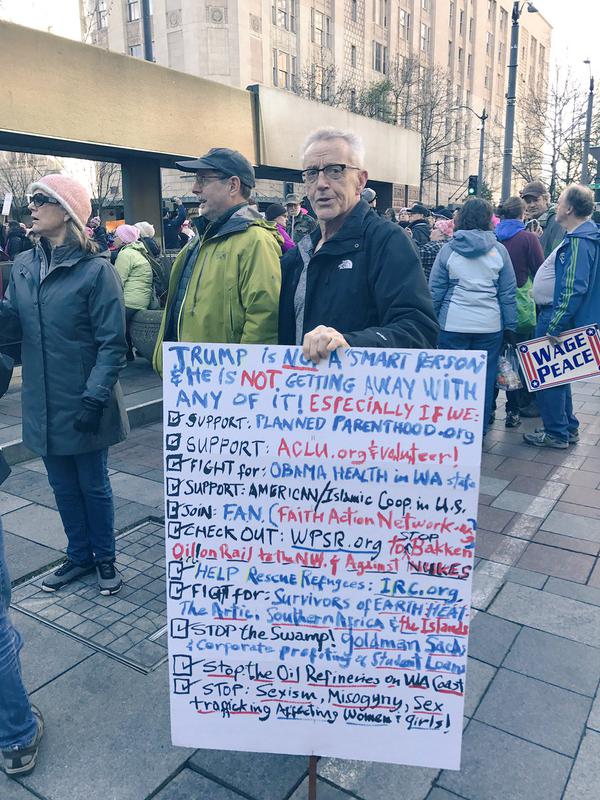 TRUMP is NOT A "SMART PERSON
& HE IS NOT GETTING AWAY WITH
ANY OF IT! ESPECIALLY IF WE:
SUPPORT: PLANNED PARENTHOOD.org
SUPPORT: ACLU.org & volunteer!
FIGHT for: OBAMA HEALTH in WA state
SUPPORT: AMERICAN/Islamic Coop. in U.S.
JOIN: FAN. (FAITH Action Network.org
CHECK OUT: WPSR.org to STOP Bakken
Oil on Rail to the NW. & Against NUKES
HELP Rescue Refugees: IRC.org.
FIGHT FOR: Survivors of EARTH HEAT:
The Artic, Southern Africa & the Islands
STOP the Swamp! Goldman Sachs
& Corporate profiting of Student Loans
Stop the Oil Refineries on WA Coast
STOP: Sexism, Misogyny, Sex
trafficking Affecting Women & girls!
WAGE
PEACE
THE
NORTH
FACE